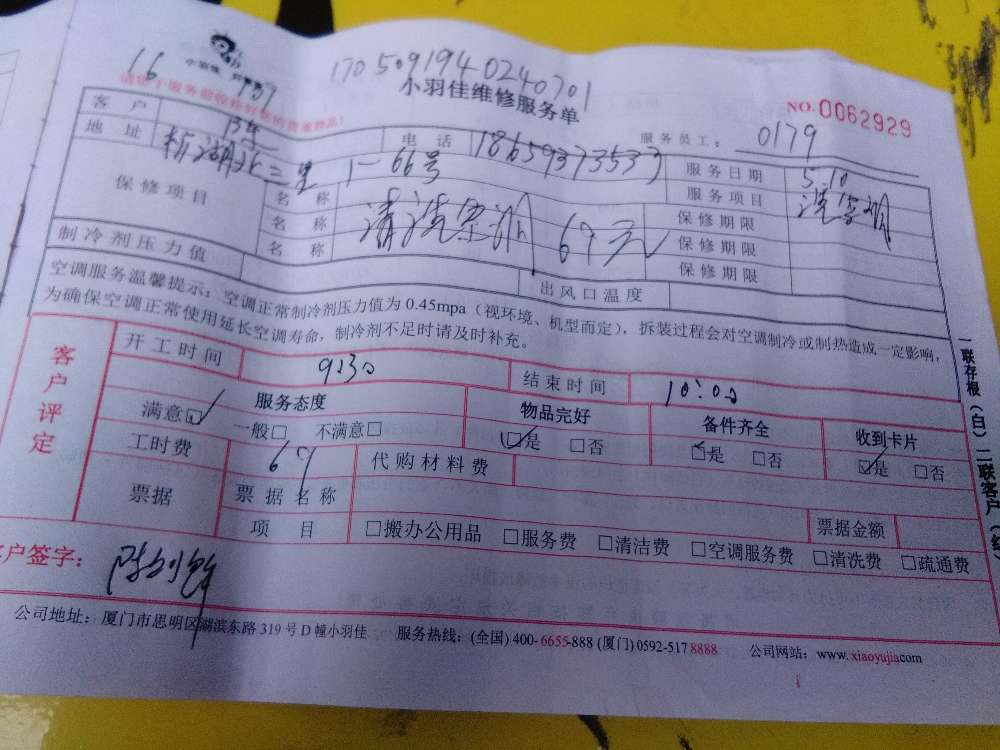 1705091940240701
16
小羽佳维修服务单
NO.0062929
服务员工： 0179
客 户 电 话 18659373533 服务日期 5.10
地 址 新湖北二里1-66号 服务项目
保修项目 名 称 清洗 69元 保修期限
名 称 保修期限
名 称 保修期限
制冷剂压力值 出风口温度
空调服务温馨提示：空调正常制冷剂压力值为 0.45mpa（视环境、机型而定），拆装过程会对空调制冷或制热造成一定影响，
为确保空调正常使用延长空调寿命，制冷剂不足时请及时补充。
客户评定
开工时间 9:30 结束时间 10:00
服务态度 物品完好 备件齐全 收到卡片
满意☑ 一般□ 不满意□ ☑是 □否 ☑是 □否 ☑是 □否
工时费 69 代购材料费
票据 票据名称 票据金额
项 目 □搬办公用品 □服务费 □清洁费 □空调服务费 □清洗费 □疏通费
户签字：
公司地址：厦门市思明区湖滨东路 319 号 D 幢小羽佳 服务热线：(全国) 400-6655-888 (厦门) 0592-517 8888 公司网站：www.xiaoyujia.com
一联存根（白）二联客户（红）